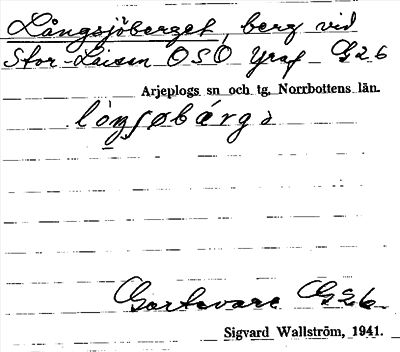 Långsjöberget, berg vid
Stor-Laisan OSO Yraf G26
Arjeplogs sn och tg, Norrbottens län.
lòŋʃøbǽrgə
Gartavare G26
Sigvard Wallström, 1941.